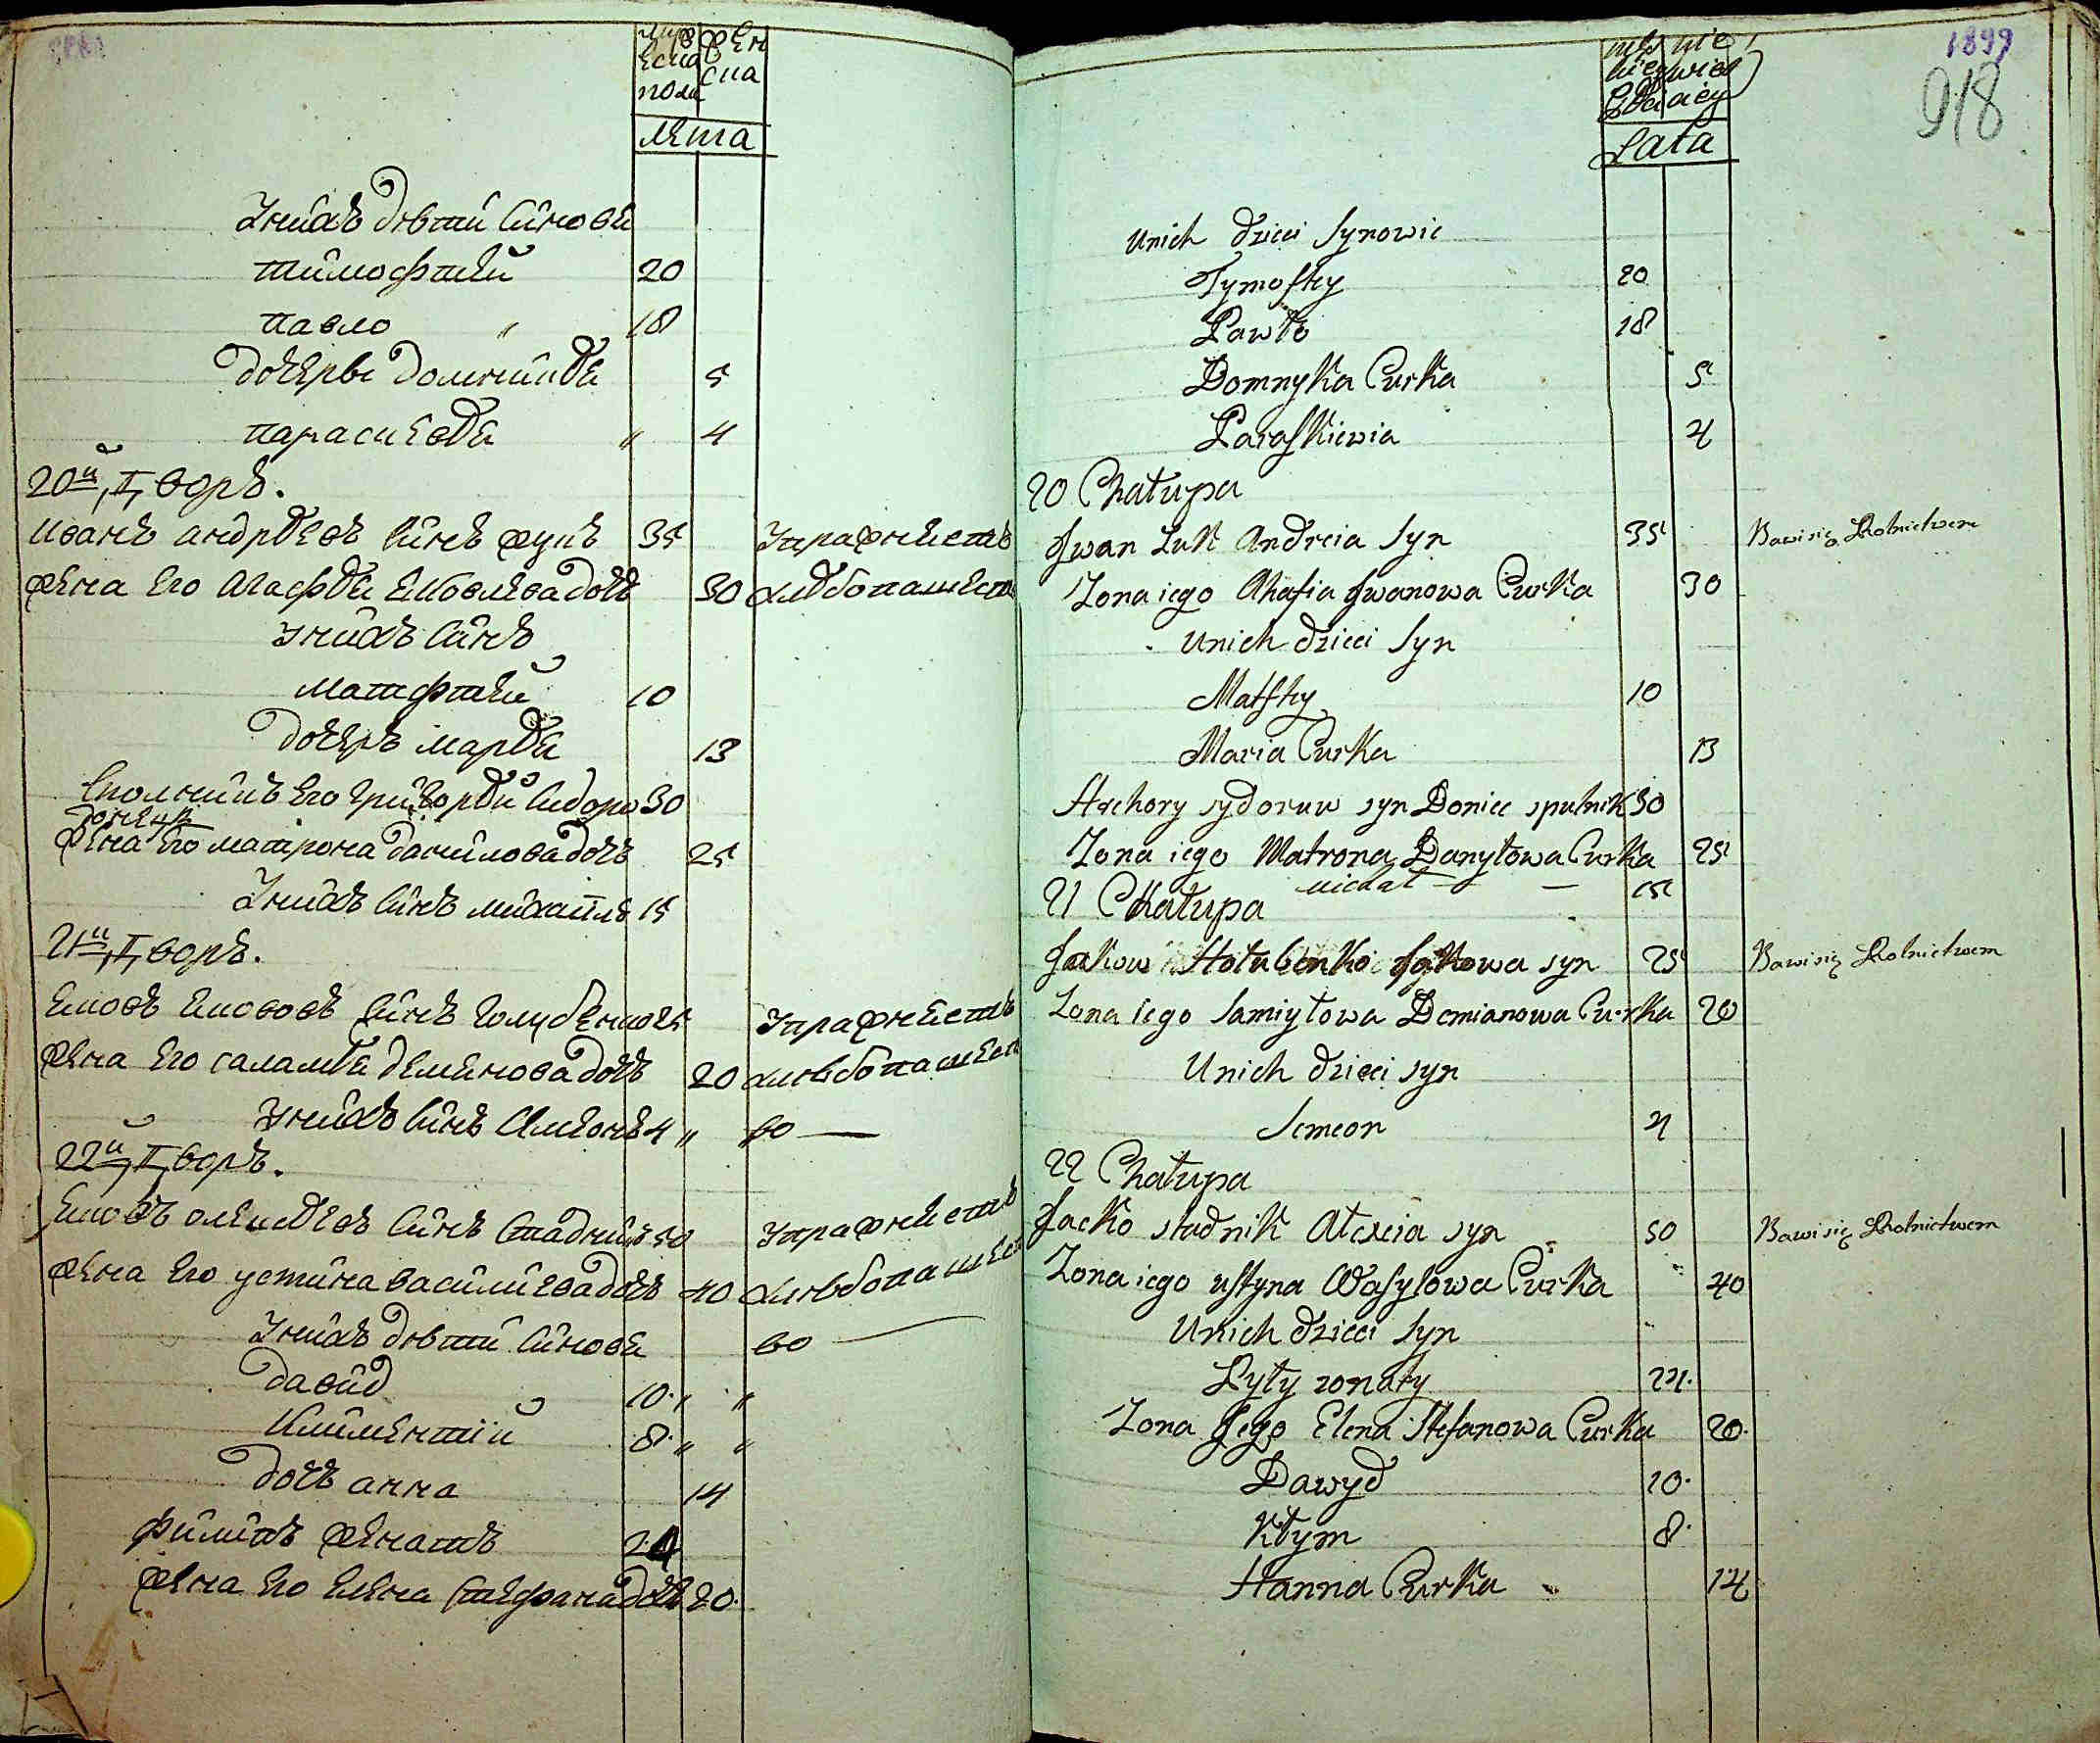 лѣта
Унихъ дѣти синовя
тимофтей 20
павло " 18
дочерѣ домникѣя 5
параскевѣя " 4
20й, Дворъ.
Иванъ андрѣевъ синъ 35 Упражняется
жена его агафѣя дочь 30 хлѣбопашест
Унихъ синъ
матфтей 10
дочерь марѣя 13
Сполникъ его григорѣй сидоро 30
донецъ
жена его матрона данилова дочь 25
Унихъ синъ михаилъ 15
21й, Дворъ.
Яковъ якововъ синъ голубенко 25 Упражняется
жена его саламѣя демянова дочь 20 хлѣбопашест
Унихъ синъ симеонъ 4 " во —
22й, Дворъ.
Яковъ олексѣевъ синъ стадникъ 50 Упражняется
жена его устина василиева дочь 40 хлѣбопашест
Унихъ дѣти синовя во —
давид 10 " "
Климентій 8 " "
дочь анна 14
филипъ женатъ 24
жена его елена стефана дочь 20
1899
918
Lata
Unich dzieci Synowie
Tymoftey 20
Pawło 18
Domnyka Curka 5
Paraskiewia 4
20 Chałupa
Jwan Żuk Andreia Syn 35 Bawi się Rolnictwem
Zona iego Ahafia Jwanowa Curka 30
Unich dzieci Syn
Matftey 10
Maria Curka 13
Hrehory sydoruw syn Doniec spulnik 30
Zona iego Matrona Danyłowa Curka 25
michał — — 15
21 Chałupa
Jakow Hołubenko Jakowa syn 25 Bawi się Rolnictwem
Zona iego Samiyłowa Demianowa Curka 20
Unich dzieci syn
Semeon 4
22 Chałupa
Jacko stadnik Alexia syn 50 Bawi się Rolnictwem
Zona iego ustyna Wasylowa Curka 40
Unich dzieci Syn
Pyły zonaty 24
Zona Jego Elena Stefanowa Curka 20
Dawyd 10
Kłym 8
Hanna Curka 14